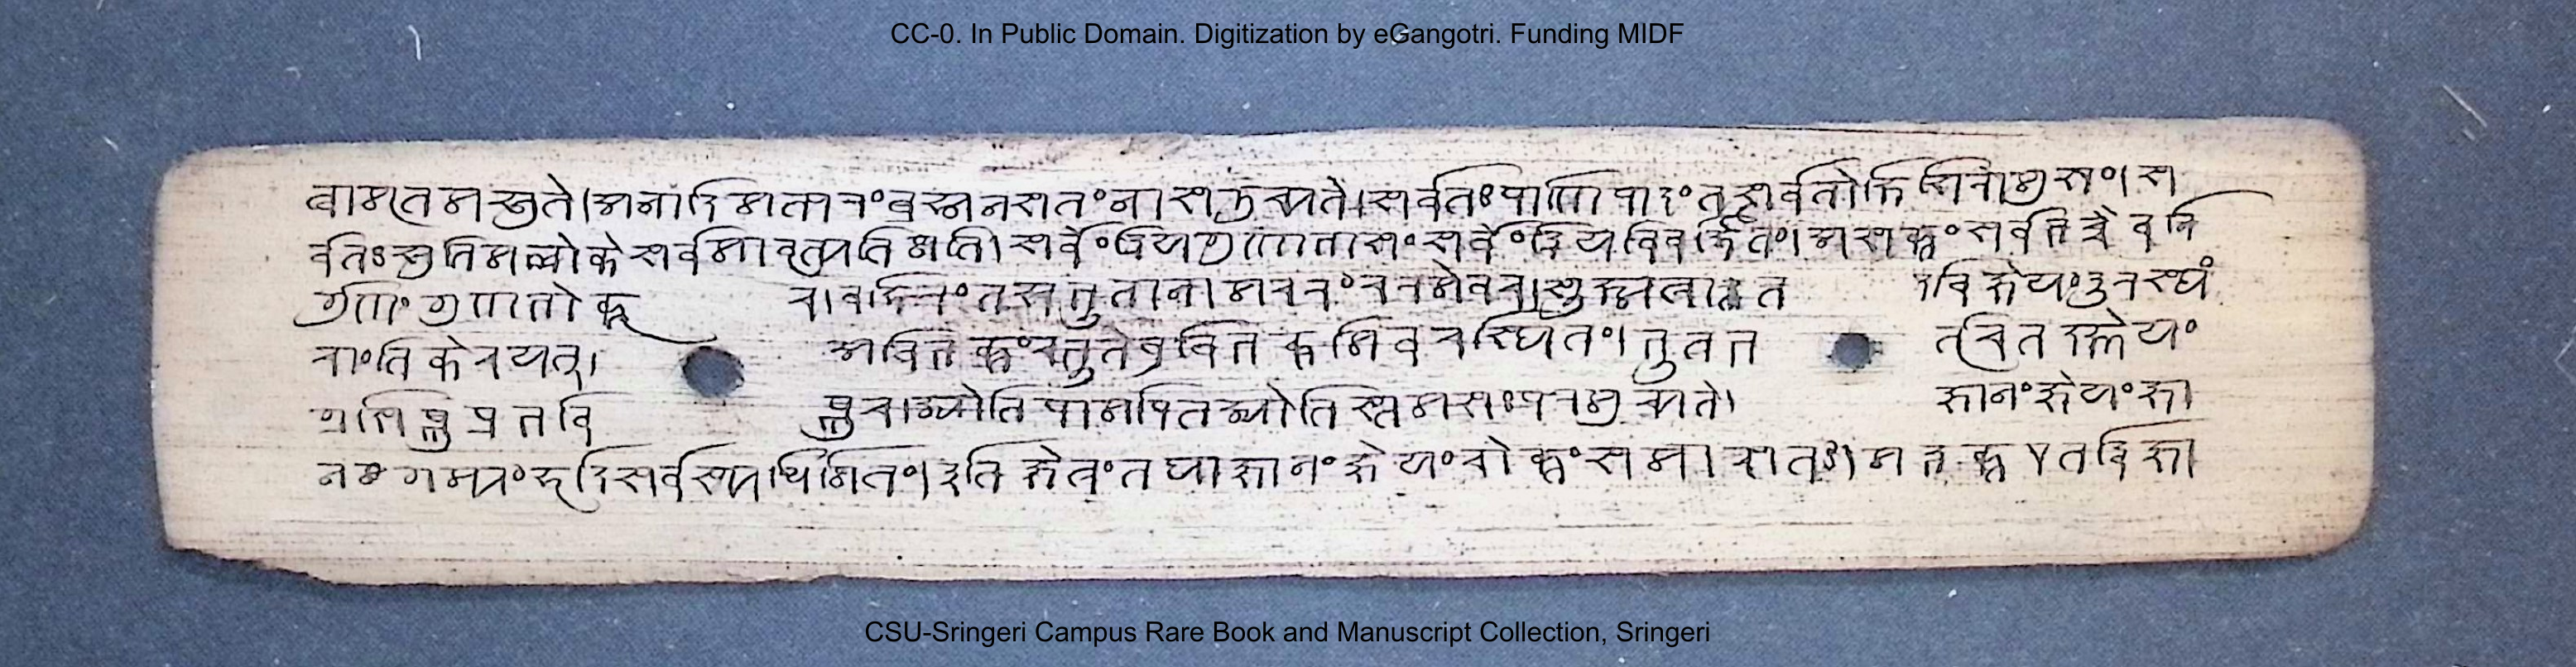 CC-0. In Public Domain. Digitization by eGangotri. Funding MIDF
त्वामृतमश्नुते। अनादिमत्परं ब्रह्म न सत्तं नासदुच्यते। सर्वतः पाणिपादं तत्सर्वतोक्षिशिरोमुखं। स
र्वतः श्रुतिमल्लोके सर्वमावृत्य तिष्ठति। सर्वेंद्रियगुणाभासं सर्वेंद्रियविवर्जितं। असक्तं सर्वभृच्चैव नि
र्गुणं गुणभोक्तृ च। बहिरंतश्च भूतानामचरं चरमेव च। सूक्ष्मत्वात्तदविज्ञेयं दूरस्थं
चांतिके च यत्। अविभक्तं च भूतेषु विभक्तमिव च स्थितं। भूतभर्तृ च तज्ज्ञेयं
ग्रसिष्णु प्रभविष्णु च। ज्योतिषामपि तज्ज्योतिस्तमसः परमुच्यते। ज्ञानं ज्ञेयं ज्ञा
नगम्यं हृदि सर्वस्य धिष्ठितं। इति क्षेत्रं तथा ज्ञानं ज्ञेयं चोक्तं समासतः। मद्भक्त एतद्विज्ञा
CSU-Sringeri Campus Rare Book and Manuscript Collection, Sringeri